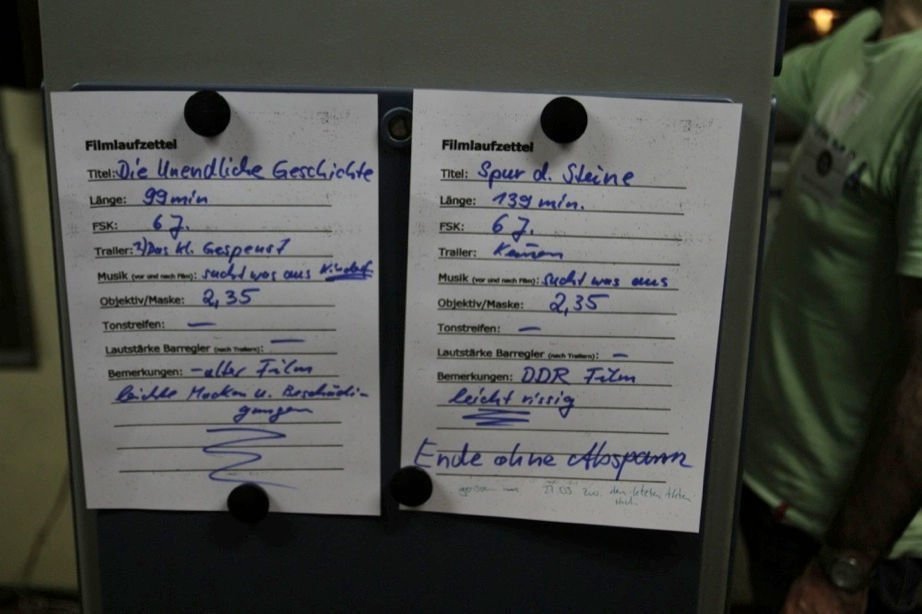 Filmlaufzettel
Titel: Die Unendliche Geschichte
Länge: 99 min
FSK: 6 J.
Trailer: Das kl. Gespenst
Musik (vor und nach Film): sucht was aus
Objektiv/Maske: 2,35
Tonstreifen: —
Lautstärke Barregler (nach Trailern): —
Bemerkungen: - alter Film
leichte Macken u. Beschädi-
gungen
Filmlaufzettel
Titel: Spur d. Steine
Länge: 139 min.
FSK: 6 J.
Trailer:
Musik (vor und nach Film): sucht was aus
Objektiv/Maske: 2,35
Tonstreifen: —
Lautstärke Barregler (nach Trailern): —
Bemerkungen: DDR Film
leicht rissig
Ende ohne Abspann
den letzten